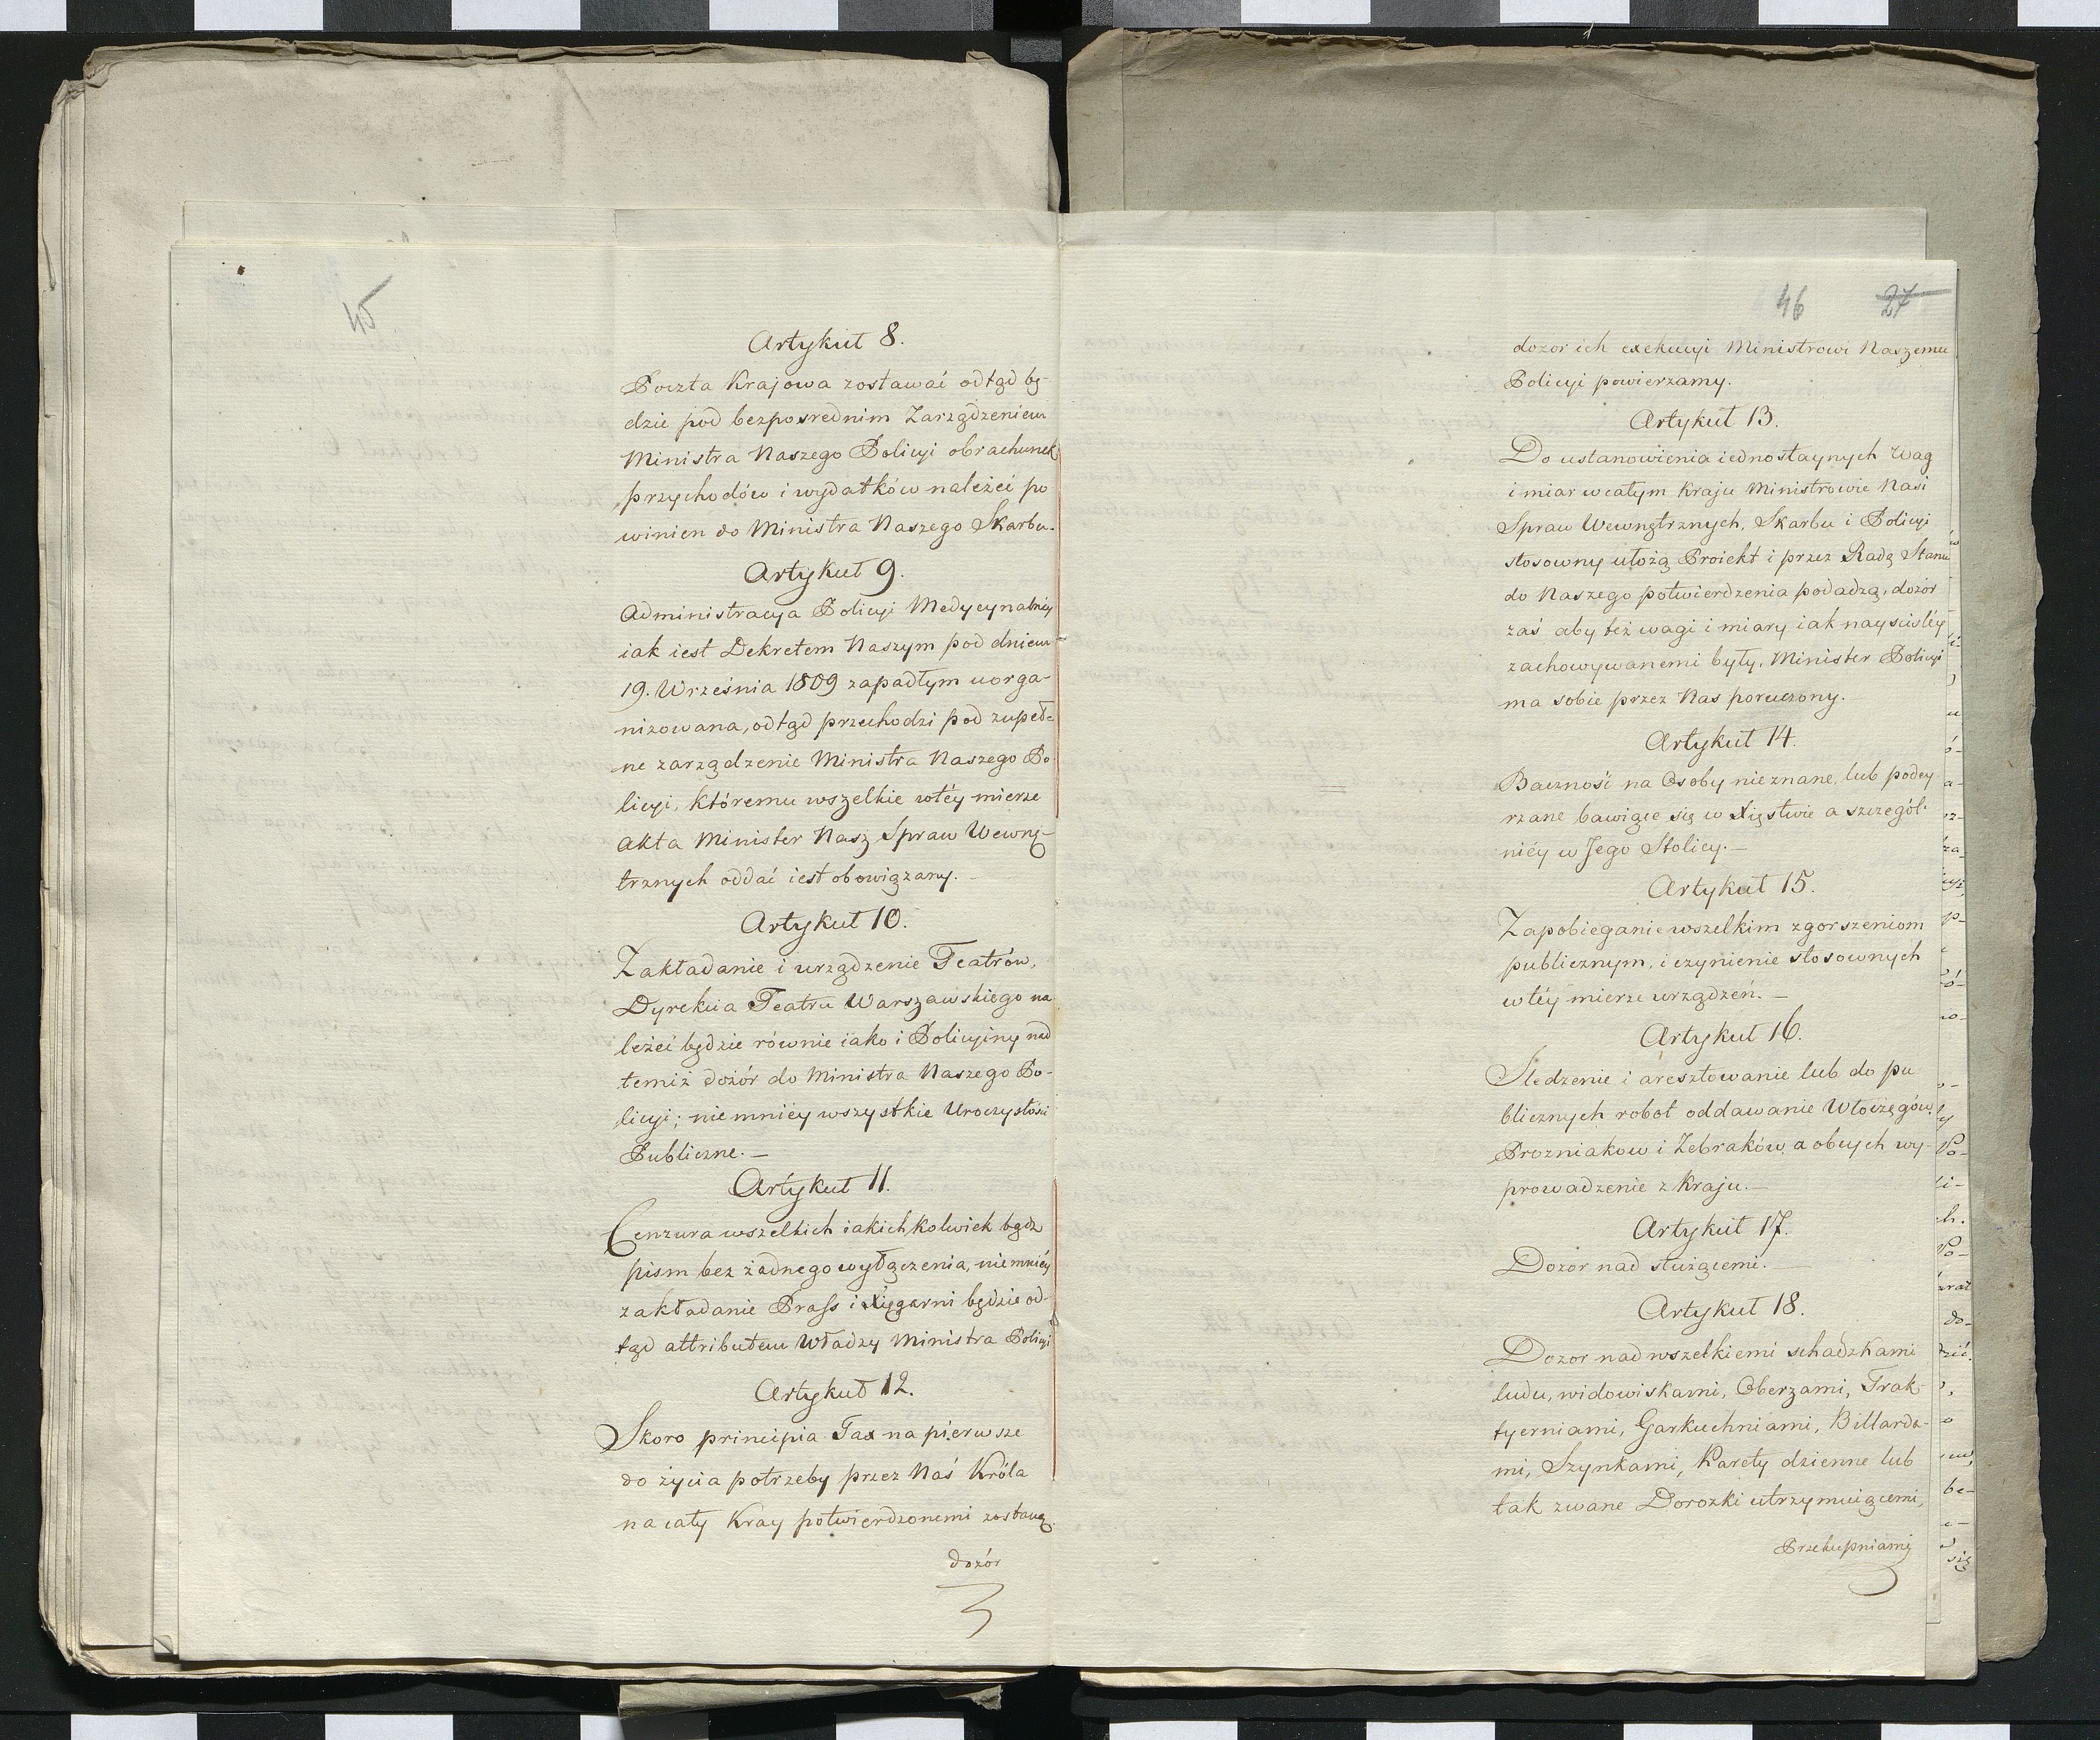 45
Artykuł 8.
Poczta Krajowa zostawać odtąd bę-
dzie pod bezpośrednim Zarządzeniem
Ministra Naszego Policyi obrachunek
przychodów i wydatków należeć po
winien do Ministra Naszego Skarbu.
Artykuł 9.
Administracya Policyi Medycynalnéy
iak iest Dekretem Naszym pod dniem
19. Września 1809 zapadłym uorga-
nizowana, odtąd przechodzi pod zupeł-
ne zarządzenie Ministra Naszego Po
licyi, któremu wszelkie w téy mierze
Akta Minister Nasz Spraw Wewnę-
trznych oddać iest obowiązany. –
Artykuł 10.
Zakładanie i urządzenie Teatrów,
Dyrekcia Teatru Warszawskiego na
leżeć będzie równie iako i Policyiny nad
temiż dozór do Ministra Naszego Po-
licyi; niemniéy wszystkie Uroczystości
Publiczne. –
Artykuł 11.
Cenzura wszelkich iakichkolwiek bądz
pism bez żadnego wyłączenia, niemniéy
zakładanie Prass i Xięgarni będzie od-
tąd attributem Władzy Ministra Policyi
Artykuł 12.
Skoro principia Tax na pierwsze
do życia potrzeby przez Naś Króla
na cały Kray potwierdzonemi zostaną.
dozór
46 27
dozor ich exekucyi Ministrowi Naszemu
Policyi powierzamy.
Artykuł 13.
Do ustanowienia iednostaynych Wag
i miar w całym Kraju Ministrowie Nasi
Spraw Wewnętrznych, Skarbu i Policyi
stosowny ułożą Proiekt i przez Radę Stanu
do Naszego potwierdzenia podadzą, dozór
zaś aby też wagi i miary iak nayściśléy
zachowywanemi były, Minister Policyi
ma sobie przez Nas poruczony.
Artykuł 14.
Baczność na Osoby nieznane, lub podey
rzane bawiące się w Xięstwie a szczegól-
niéy w Jego Stolicy. –
Artykuł 15.
Zapobieganie wszelkim zgorszeniom
publicznym, i czynienie stosownych
w téy mierze urządzeń. –
Artykuł 16.
Śledzenie i aresztowanie lub do pu
blicznych robot oddawanie Włoczęgów,
Prozniakow i Żebraków, a obcych wy-
prowadzenie z Kraju. –
Artykuł 17.
Dozor nad służącemi. –
Artykuł 18.
Dozor nad wszelkiemi schadzkami
ludu, widowiskami, Oberzami, Trak-
tyerniami, Garkuchniami, Billarda-
mi, Szynkami, Karety dzienne lub
tak zwane Dorozki utrzymuiącemi,
Przekupniami